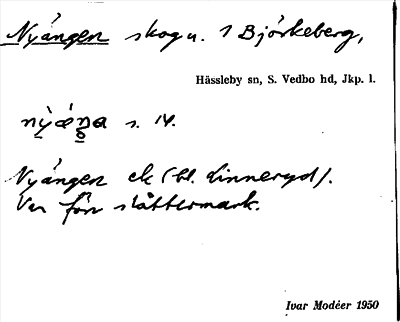 Nyängen skog u. 1 Björkeberg,
Hässleby sn, S. Vedbo hd, Jkp. l.
s. 14.
Nyängen ek (bl. Linneryd).
Var förr slåttermark.
Ivar Modéer 1950